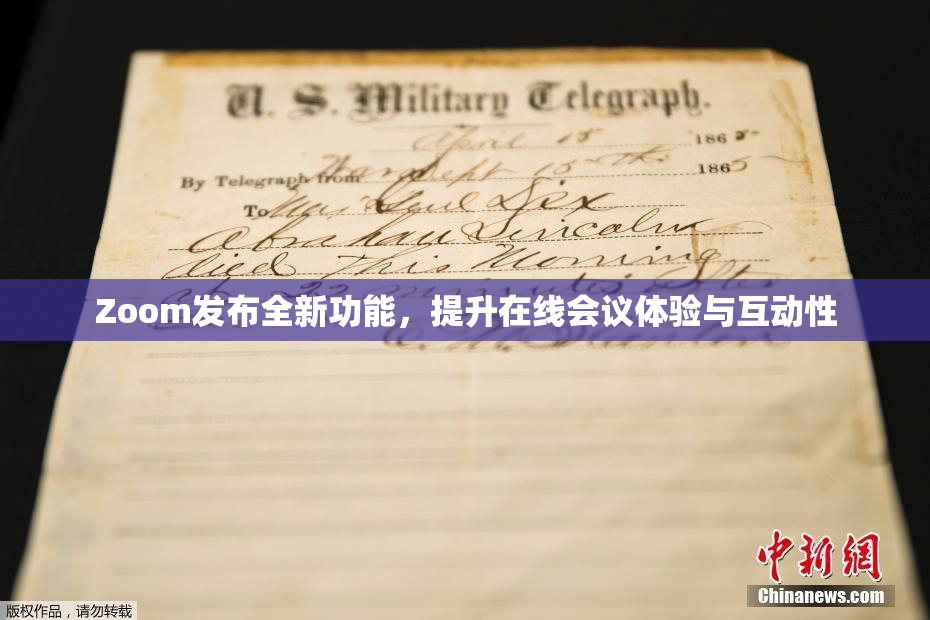 U. S. Military Telegraph.
April 15 1865
By Telegraph from War Dept 15th 1865
To Maj Genl Dix
Abraham Lincoln
died This Morning
22 minutes after
Zoom发布全新功能，提升在线会议体验与互动性
E. M. Stanton
中新网
Chinanews.com
版权作品，请勿转载